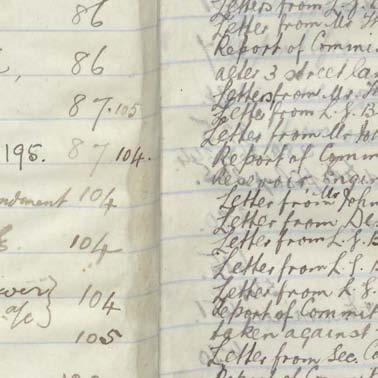 86
, 86
87.105
195. 87 104.
ndment 104
104
104
a/c }
105
Letters from L. J.
Letter from Mr
Report of Commi
after 3 street lan
Letters from Mr.
Letter from L. J. B
Letter from Mr Joh
Report of Comm
Reservoir Engin
Letter from Mr John
Letter from De
Letter from L. J. B
Letter from L. J. B
Letter from R. J.
Report of Commit
taken against
Letter from Sec. Co